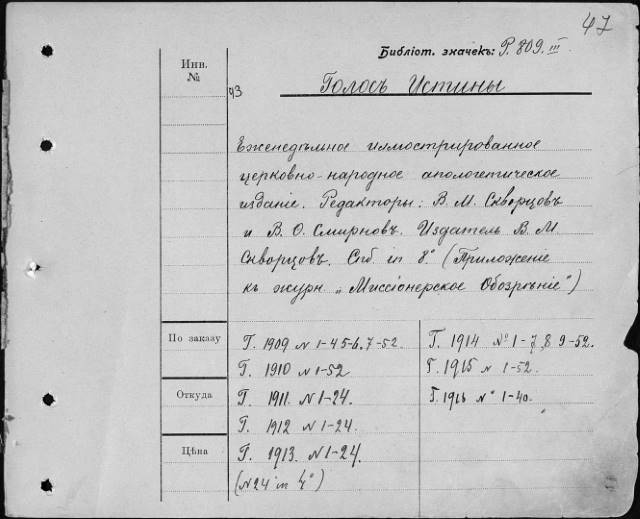 47
Библіот. значекъ: Р. 809. III
Инв. №
93
Голосъ Истины
Еженедѣльное иллюстрированное
церковно-народное апологетическое
изданіе. Редакторы: В. М. Скворцовъ
и В. О. Смирновъ. Издатель В. М.
Скворцовъ. Спб. in 8.° (Приложеніе
къ журн „Миссіонерское Обозрѣніе")
По заказу
Г. 1909 N 1-4 5-6. 7-52.
Г. 1910 N 1-52
Откуда
Г. 1911. N 1-24.
Г. 1912 N 1-24.
Цѣна
Г. 1913. N 1-24.
(N 24 in 4°)
Г. 1914 N° 1-7, 8 9-52.
Г. 1915 N 1-52.
Г. 1916 N° 1-40.